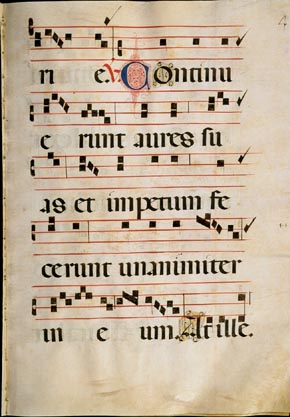 ri e. V. Continu
e runt aures su
as et impetum fe
cerunt unanimiter
in e um. At ille.